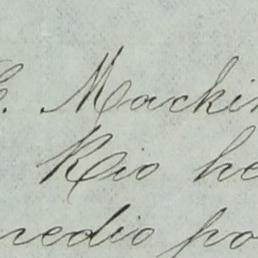 C. Mackin
Rio he
redio po